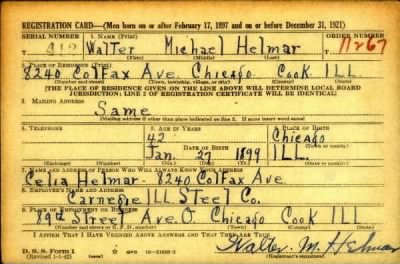 REGISTRATION CARD—(Men born on or after February 17, 1897 and on or before December 31, 1921)
SERIAL NUMBER 1. NAME (Print) ORDER NUMBER
412 Walter Michael Helmar 11267
(First) (Middle) (Last)
2. PLACE OF RESIDENCE (Print)
8240 Colfax Ave. Chicago Cook ILL
(Number and street) (Town, township, village, or city) (County) (State)
[THE PLACE OF RESIDENCE GIVEN ON THE LINE ABOVE WILL DETERMINE LOCAL BOARD
JURISDICTION; LINE 2 OF REGISTRATION CERTIFICATE WILL BE IDENTICAL]
3. MAILING ADDRESS
Same
[Mailing address if other than place indicated on line 2. If same insert word same]
4. TELEPHONE 5. AGE IN YEARS PLACE OF BIRTH
42 Chicago
DATE OF BIRTH
Jan. 27 1899 ILL.
(Exchange) (Number) (Mo.) (Day) (Yr.) (State or country)
7. NAME AND ADDRESS OF PERSON WHO WILL ALWAYS KNOW YOUR ADDRESS
Celia Helmar - 8240 Colfax Ave
8. EMPLOYER'S NAME AND ADDRESS
Carnegie ILL. Steel Co.
9. PLACE OF EMPLOYMENT OR BUSINESS
89th Street Ave. O. Chicago Cook ILL
(Number and street or R. F. D. number) (Town) (County) (State)
I AFFIRM THAT I HAVE VERIFIED ABOVE ANSWERS AND THAT THEY ARE TRUE.
D. S. S. Form 1
(Revised 1-1-42) (over) GPO 16—21630-2
Walter M. Helmar